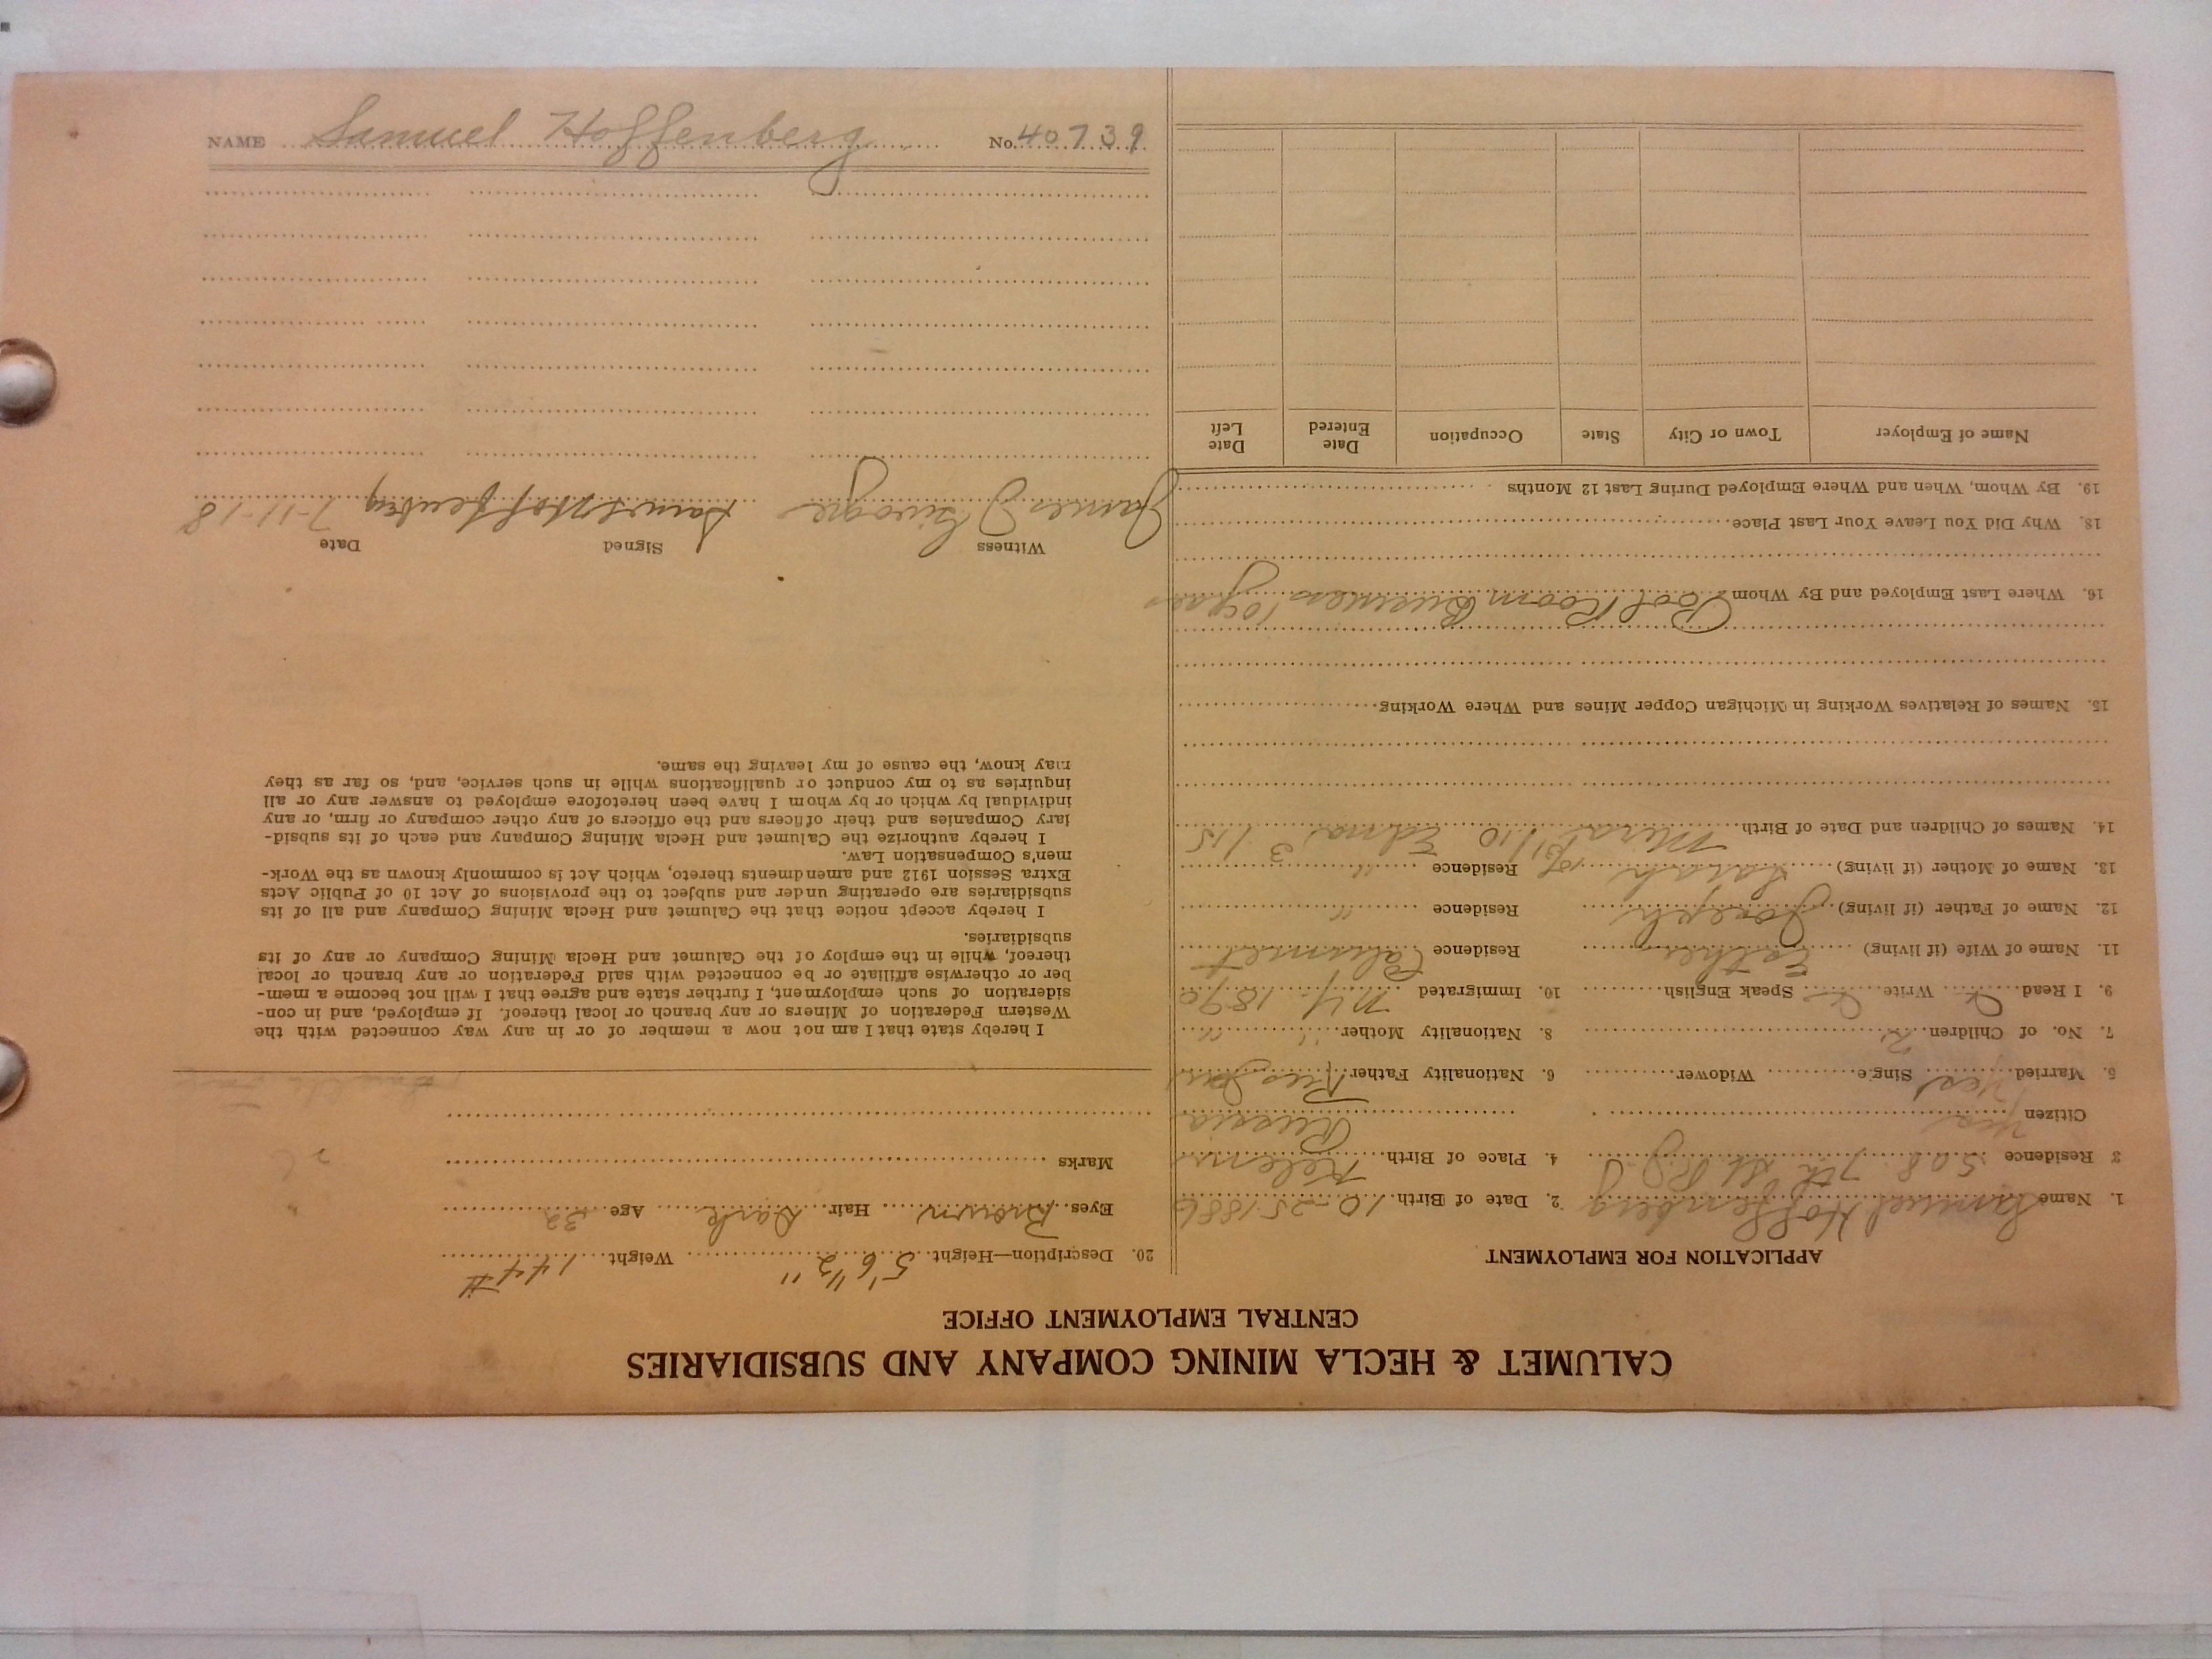 CALUMET & HECLA MINING COMPANY AND SUBSIDIARIES
CENTRAL EMPLOYMENT OFFICE
APPLICATION FOR EMPLOYMENT
1. Name Samuel Hoffenberg 2. Date of Birth 10-25 1886
3 Residence 508 7th St 4. Place of Birth
Citizen yes Russia
5. Married yes Single Widower 6. Nationality Father Russian
7. No. of Children 2 8. Nationality Mother " "
9. I Read Write Speak English 10. Immigrated N.Y. 1890
11. Name of Wife (if living) Esther Residence Calumet
12. Name of Father (if living) Joseph Residence "
13. Name of Mother (if living) Sarah Residence "
14. Names of Children and Date of Birth 10 Edna 3/15
15. Names of Relatives Working in Michigan Copper Mines and Where Working
16. Where Last Employed and By Whom Pool Room Business 10 yrs
18. Why Did You Leave Your Last Place
19. By Whom, When and Where Employed During Last 12 Months
Name of Employer Town or City State Occupation Date Entered Date Left
20. Description—Height 5' 6 1/2" Weight 144 #
Eyes Brown Hair Dark Age 32
Marks
I hereby state that I am not now a member of or in any way connected with the
Western Federation of Miners or any branch or local thereof. If employed, and in con-
sideration of such employment, I further state and agree that I will not become a mem-
ber or otherwise affiliate or be connected with said Federation or any branch or local
thereof, while in the employ of the Calumet and Hecla Mining Company or any of its
subsidiaries.
I hereby accept notice that the Calumet and Hecla Mining Company and all of its
subsidiaries are operating under and subject to the provisions of Act 10 of Public Acts
Extra Session 1912 and amendments thereto, which Act is commonly known as the Work-
men's Compensation Law.
I hereby authorize the Calumet and Hecla Mining Company and each of its subsid-
iary Companies and their officers and the officers of any other company or firm, or any
individual by which or by whom I have been heretofore employed to answer any or all
inquiries as to my conduct or qualifications while in such service, and, so far as they
may know, the cause of my leaving the same.
Witness Signed Date
James Saml Hoffenberg 7-11-18
NAME Samuel Hoffenberg No. 40739